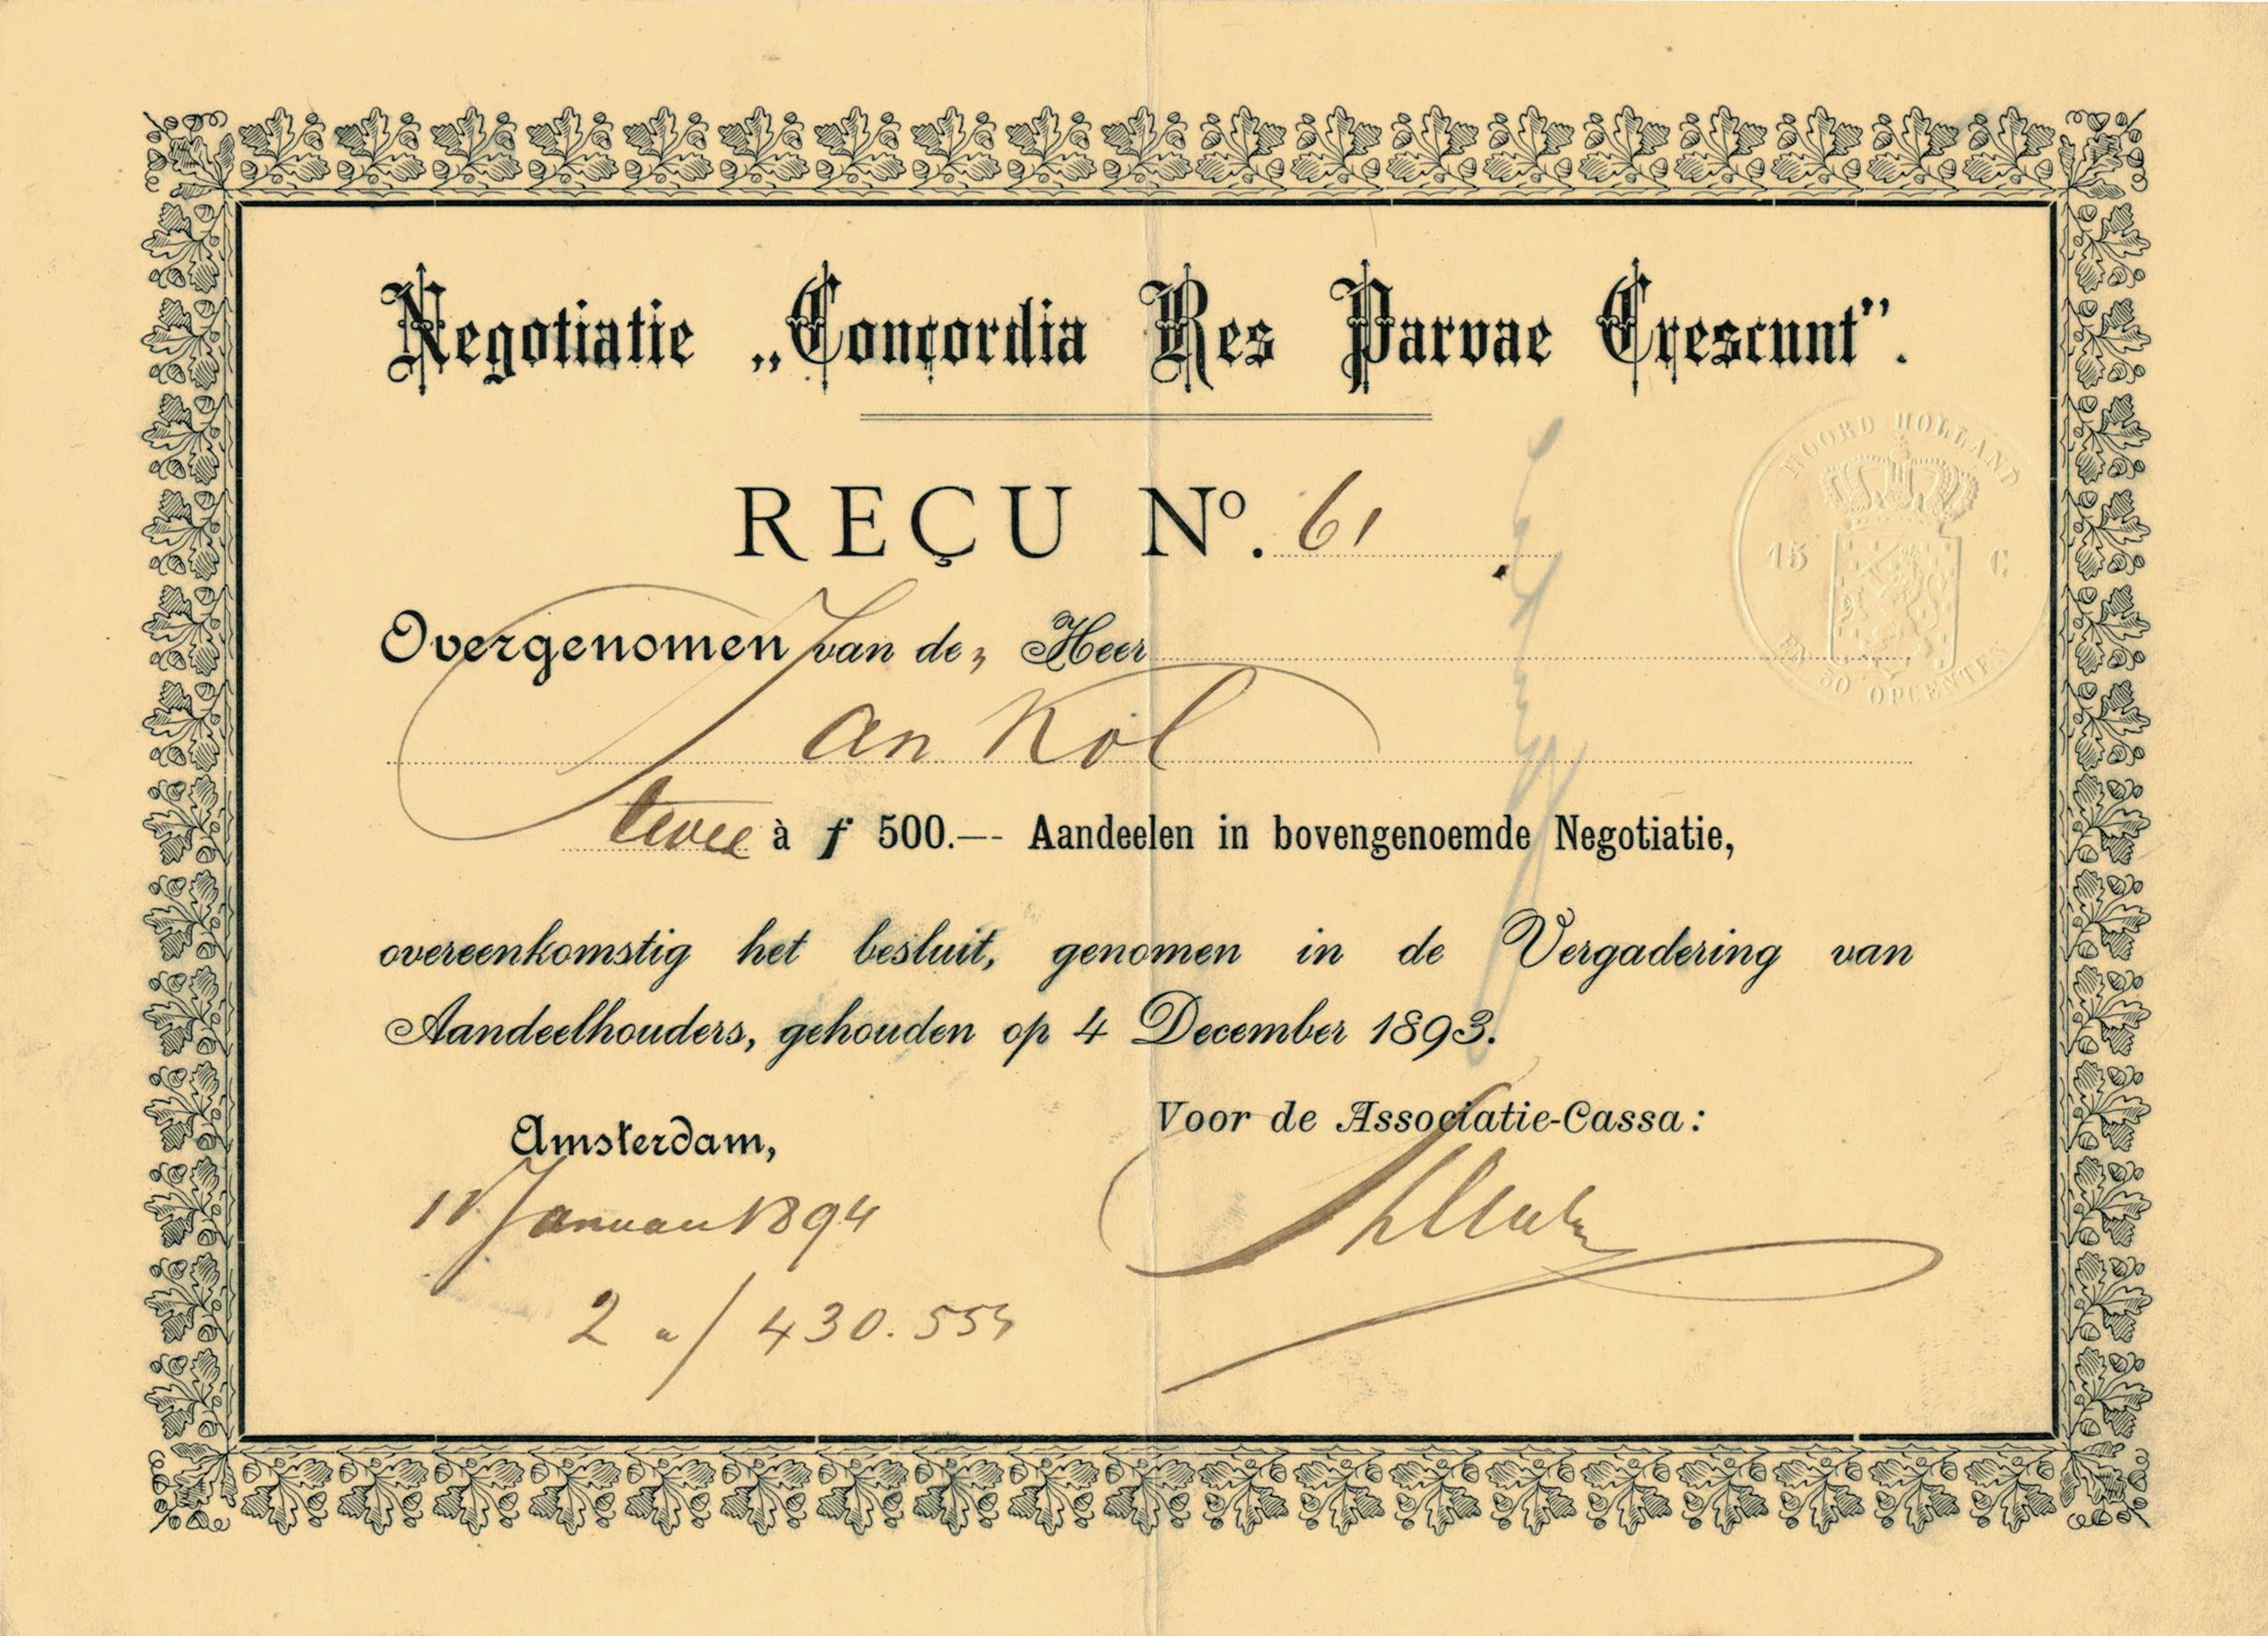 Negotiatie „Concordia Res Parvae Crescunt”.
REÇU Nº. 61
NOORD HOLLAND
15 C
EN 50 OPCENTEN
Overgenomen van den Heer
Jan Kol
twee à ƒ 500.— Aandeelen in bovengenoemde Negotiatie,
overeenkomstig het besluit, genomen in de Vergadering van
Aandeelhouders, gehouden op 4 December 1893.
Voor de Associatie-Cassa:
Amsterdam,
11 Januari 1894
2 a ƒ 430.555